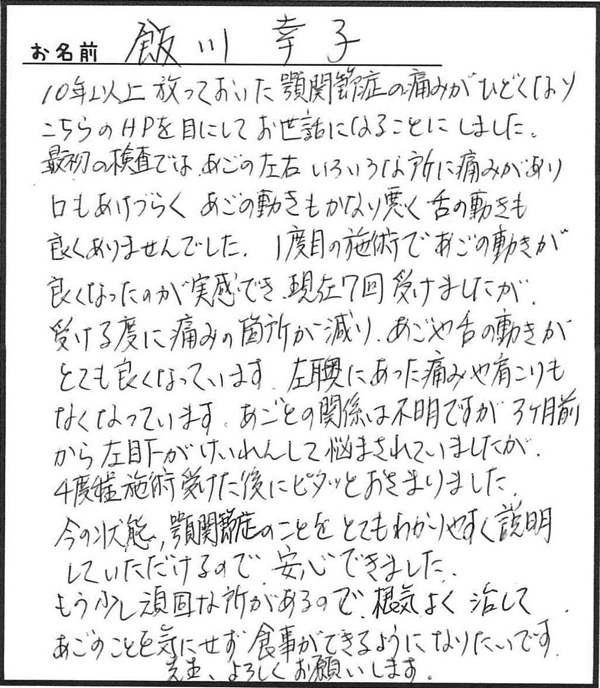 お名前 飯川 幸子
10年以上放っておいた顎関節症の痛みがひどくなり
こちらのHPを目にしてお世話になることにしました。
最初の検査では、あごの左右いろいろな所に痛みがあり
口もあけづらく あごの動きもかなり悪く舌の動きも
良くありませんでした。1度目の施術であごの動きが
良くなったのが実感でき、現在7回受けましたが、
受ける度に痛みの箇所が減り、あごや舌の動きが
とても良くなっています。左腰にあった痛みや肩こりも
なくなっています。あごとの関係は不明ですが3ヶ月前
から左目下がけいれんして悩まされていましたが、
4度程施術受けた後にピタッとおさまりました。
今の状態、顎関節症のことをとてもわかりやすく説明
していただけるので、安心できました。
もう少し頑固な所があるので、根気よく治して
あごのことを気にせず食事ができるようになりたいです。
先生、よろしくお願いします。